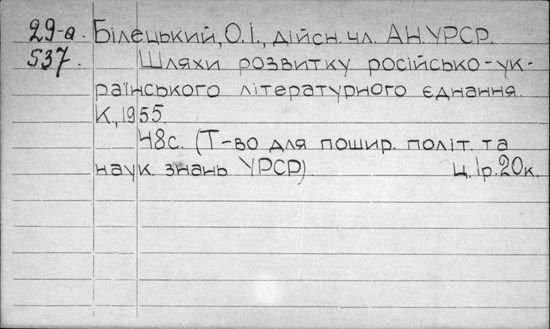 29-а. Білецький, О.І., дійсн. чл. АН УРСР.
537. Шляхи розвитку російсько-ук-
раїнського літературного єднання.
К., 1955.
48с. (Т-во для пошир. політ. та
наук. знань УРСР) ц. 1р. 20к.